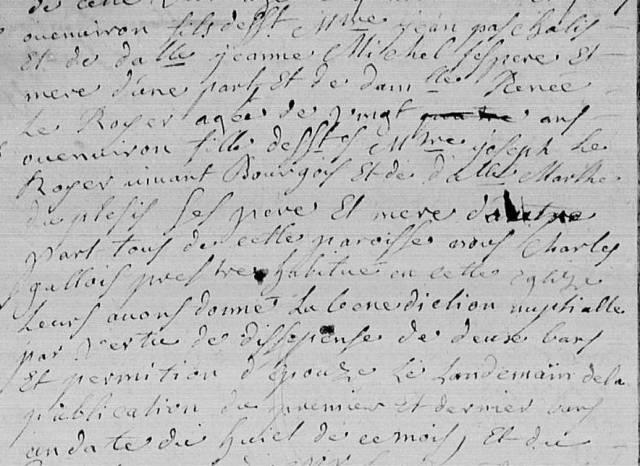 de cette
ouenviron fils desst Mme jean paschalis
Et de dalle jeanne Michel ses pere Et
mere d'une part, Et de damlle Renée
Le Royer agée de vingt quatre ans
ouenviron fille desst Mme joseph Le
Royer vivant Bourgois Et de dalle Marthe
du plesis ses pere Et mere d'autre
part tous de cette paroisse nous Charles
gallois prestre habitué en cette eglize
Leurs avons donné La benediction nuptialle
par vertu de dissepense de deux bans
Et permition d'épouze Le Landemain dela
publication du premier Et dernier bans
en date du huict de ce mois, Et du